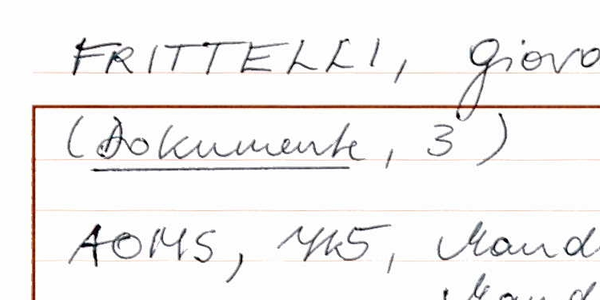 FRITTELLI, Giova
(Dokumente, 3)
AOMS,